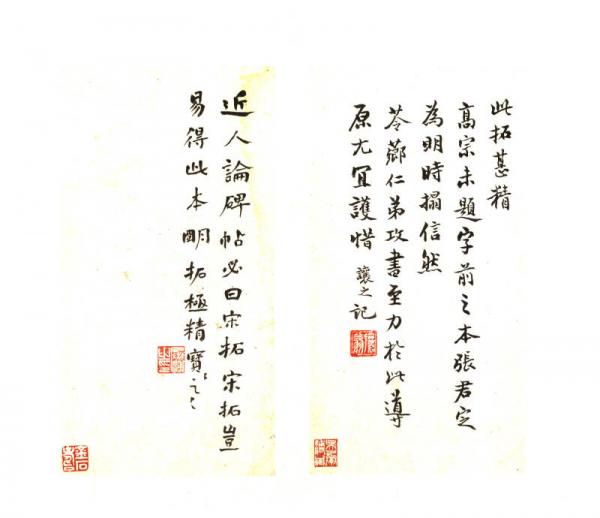 此拓甚精
高宗未題字前之本張君定
為明時搨信然
苓薌仁弟攻書至力於此導
原尤宜護惜 讓之記
近人論碑帖必曰宋拓宋拓豈
易得此本明拓極精寶之〻